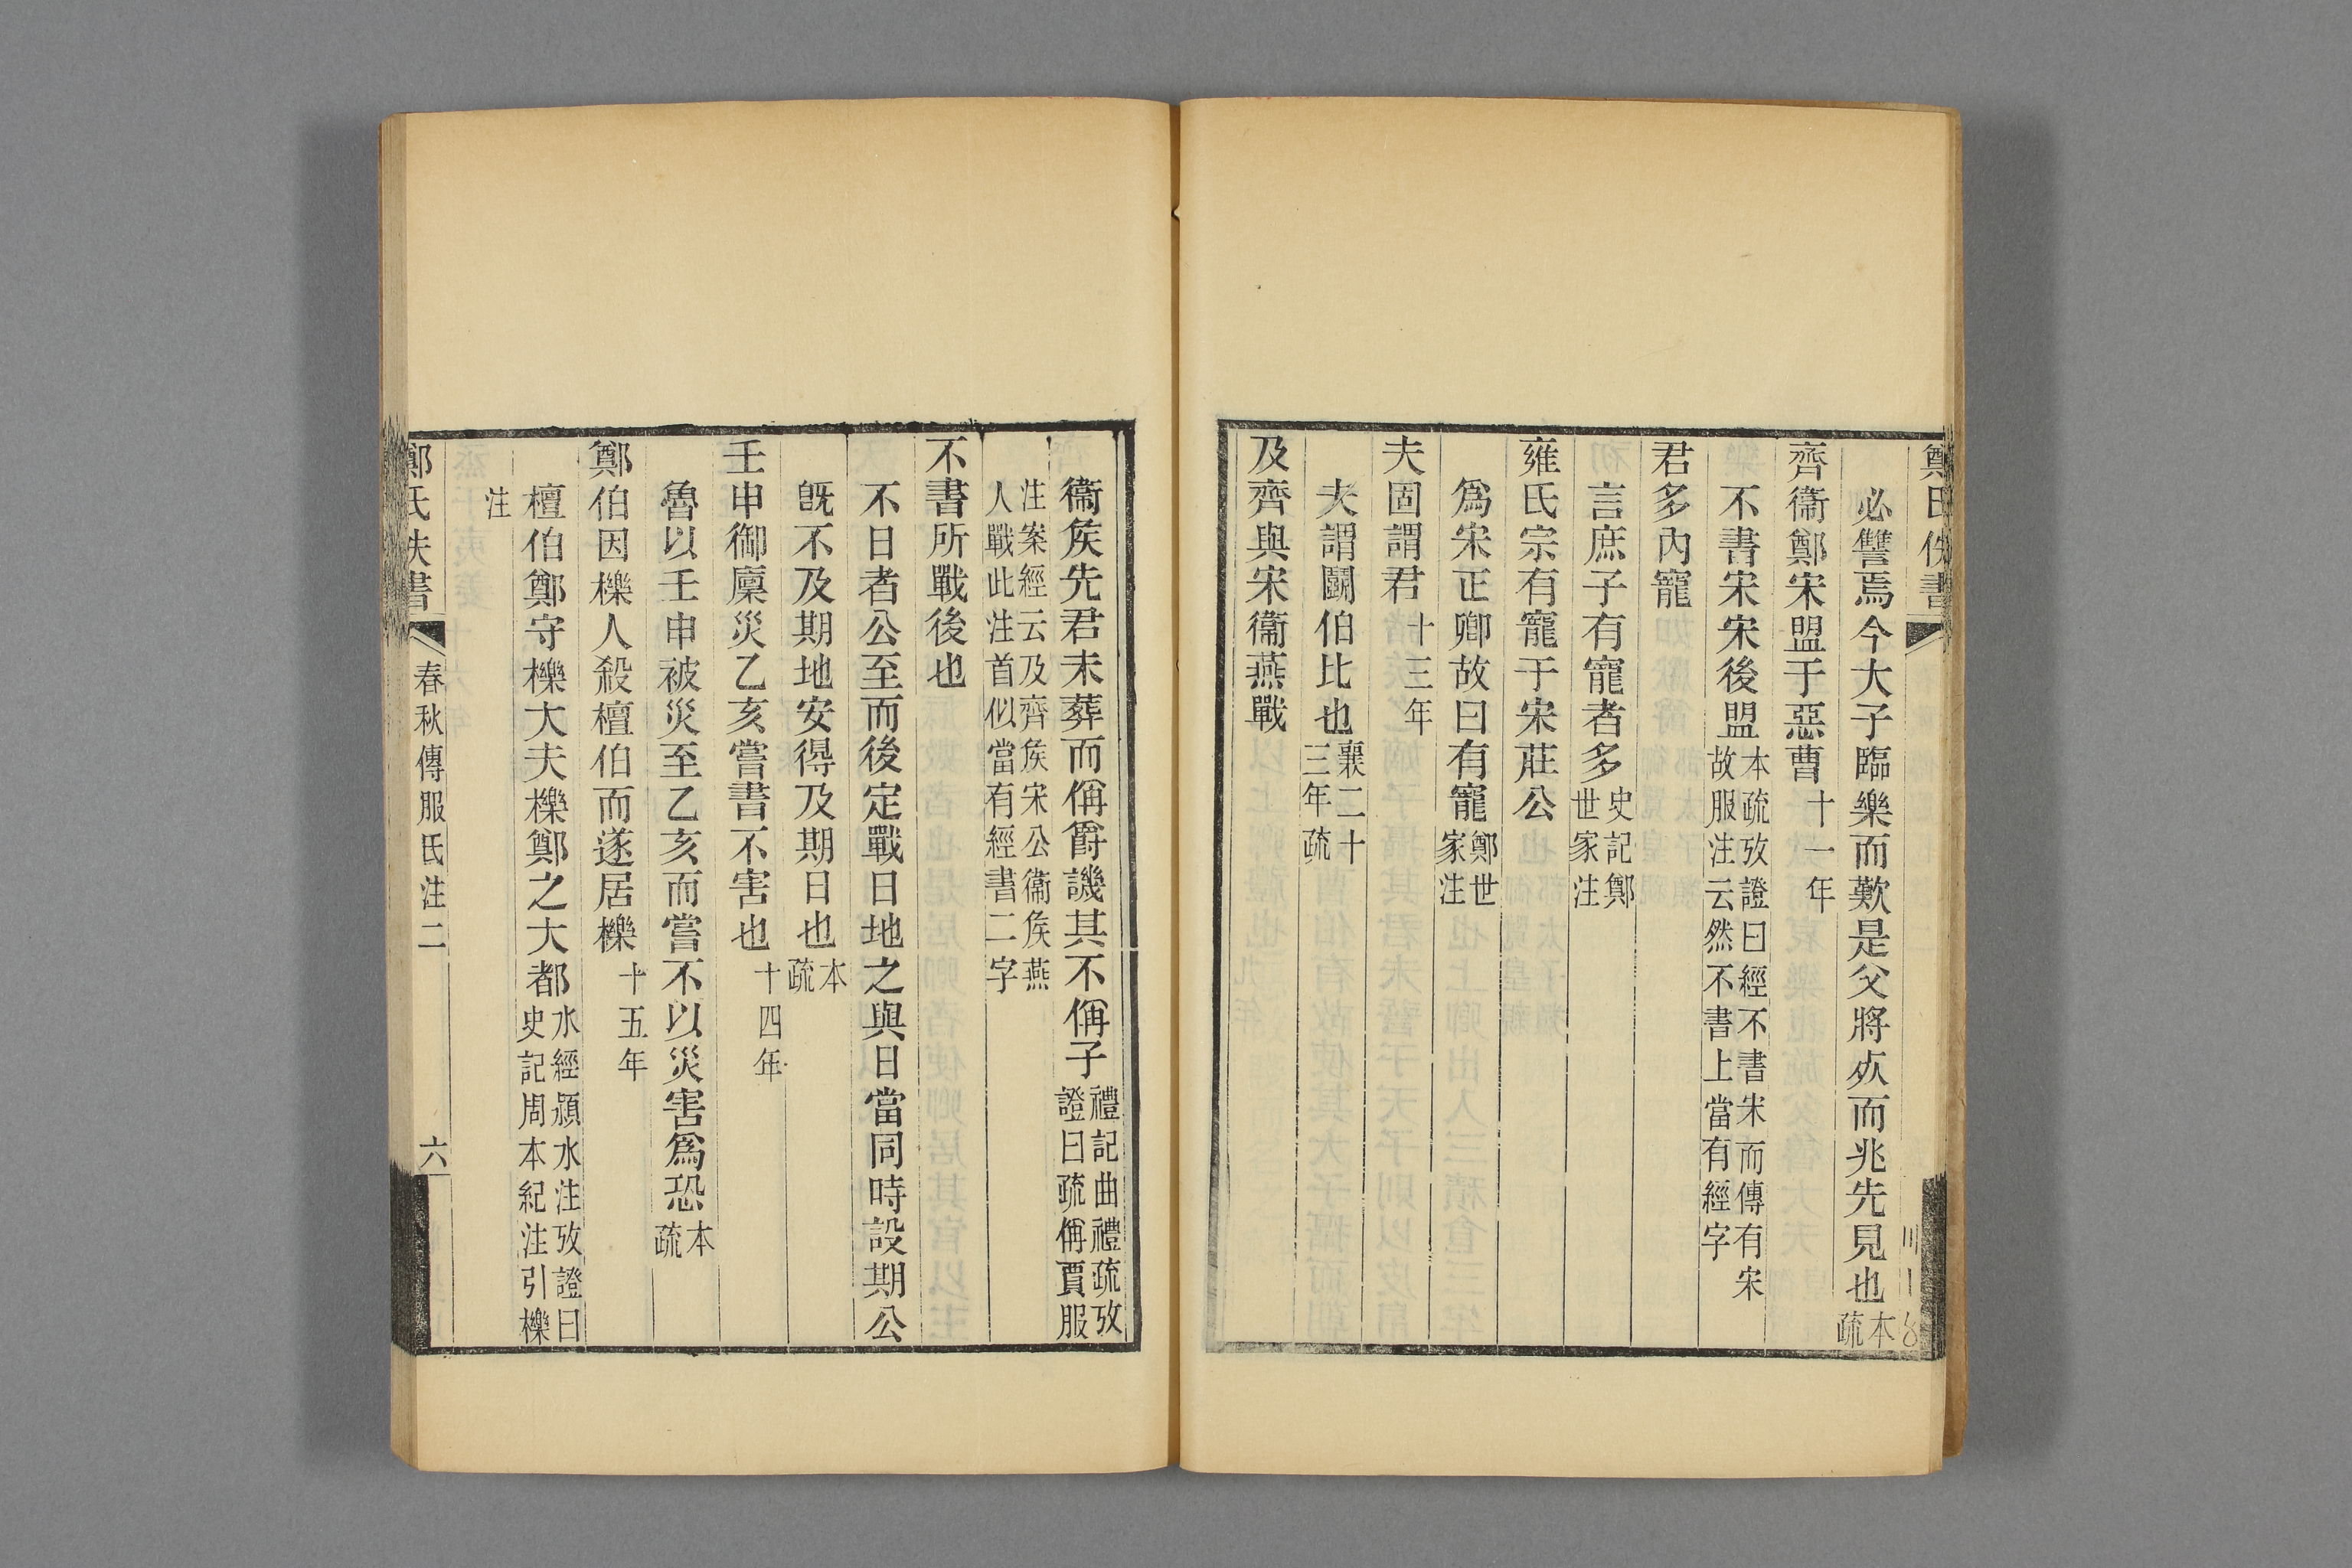 鄭氏佚書
必讐焉今大子臨樂而歎是父將死而兆先見也本疏
齊衞鄭宋盟于惡曹十一年
不書宋宋後盟本疏攷證曰經不書宋而傳有宋故服注云然不書上當有經字
君多內寵
言庶子有寵者多史記鄭世家注
雍氏宗有寵于宋莊公
爲宋正卿故曰有寵鄭世家注
夫固謂君十三年
夫謂鬭伯比也襄二十三年疏
及齊與宋衞燕戰
衞矦先君未葬而偁爵譏其不偁子禮記曲禮疏攷證曰疏偁賈服
注案經云及齊矦宋公衞矦燕人戰此注首似當有經書二字
不書所戰後也
不日者公至而後定戰日地之與日當同時設期公
旣不及期地安得及期日也本疏
壬申御廩災乙亥嘗書不害也十四年
魯以壬申被災至乙亥而嘗不以災害爲恐本疏
鄭伯因櫟人殺檀伯而遂居櫟十五年
檀伯鄭守櫟大夫櫟鄭之大都水經潁水注攷證曰史記周本紀注引櫟
注
鄭氏佚書
春秋傳服氏注二
六